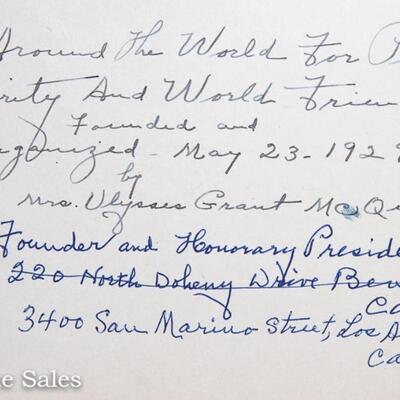 Around The World For P
rity And World Frien
Founded and
rganized - May 23 - 1929
by
Mrs. Ulysses Grant McQu
Founder and Honorary Preside
220 North Doheny Drive Bev
Ca
3400 San Marino Street, Los A
Ca
te Sales